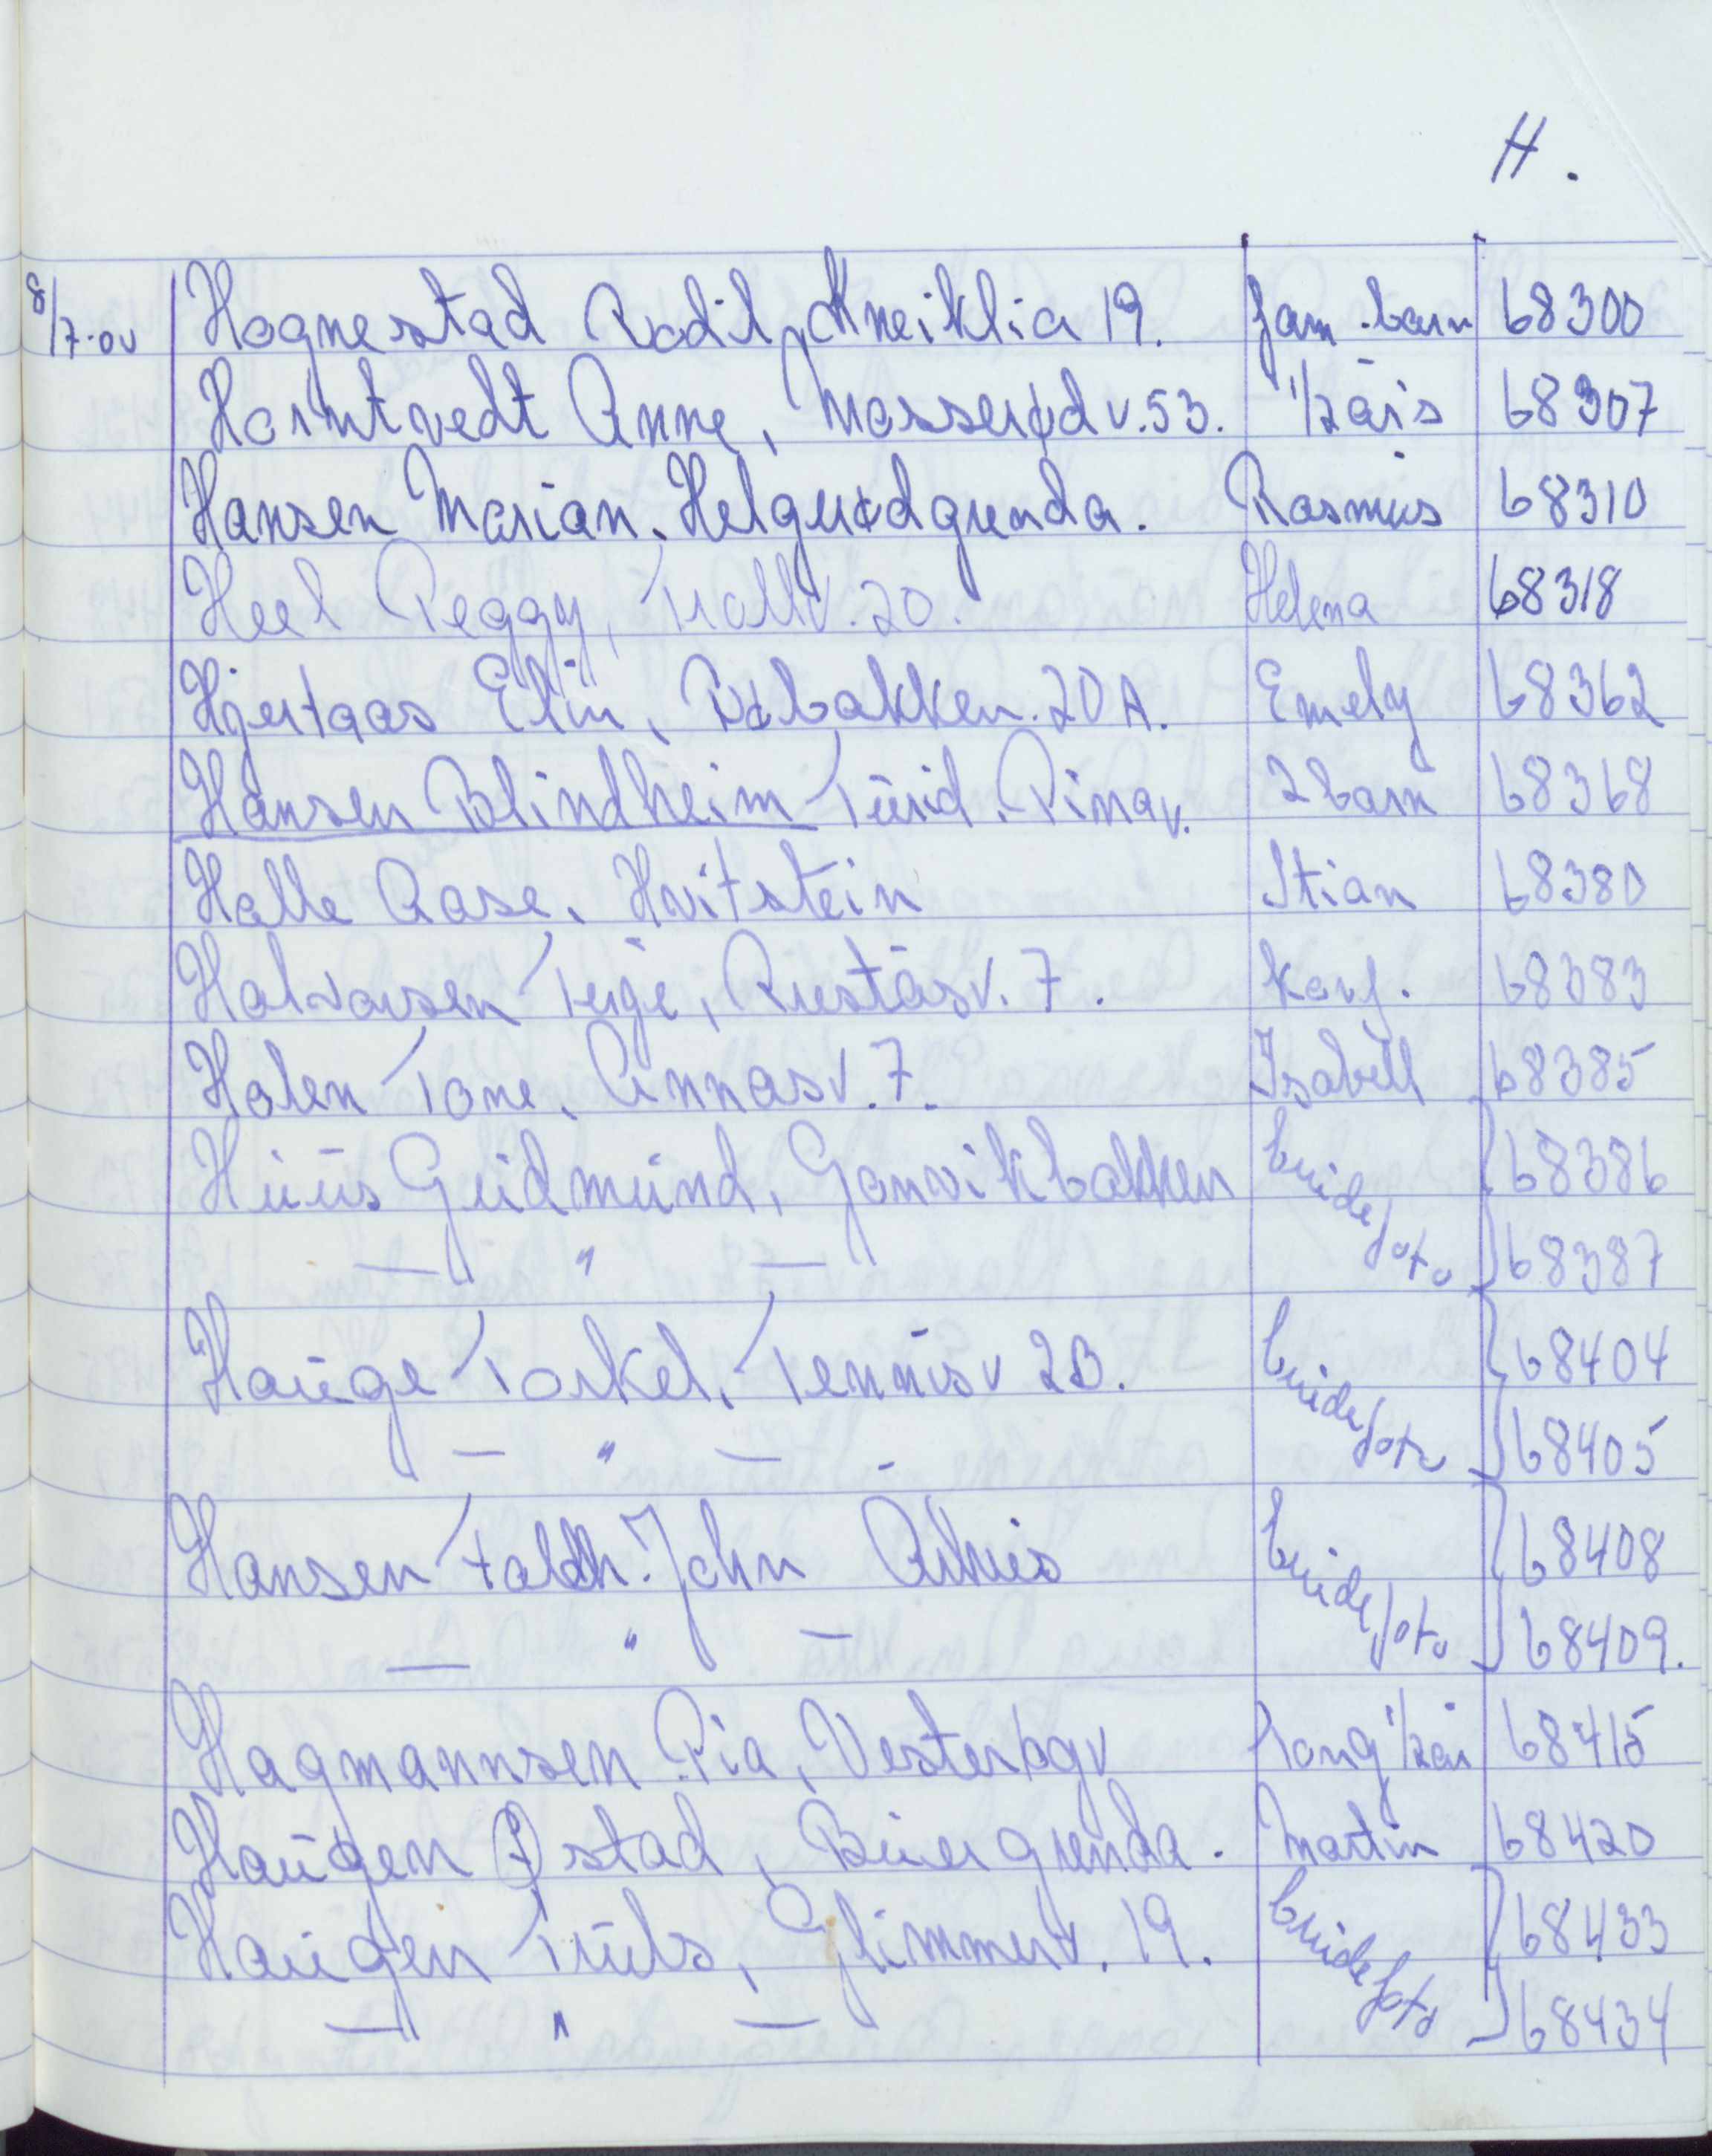 H.
8/7.00 Hognestad Bodil, Kneiklia 19. fam. barn 68300
Horntvedt Anne, Mosserød v. 53. 1/2 års 68307
Hansen Marian. Helgerødgrenda. Rasmus 68310
Heel Peggy, Trollv. 20. Helena 68318
Hjertaas Elin, Røbakken. 20 A. Emely 68362
Hansen Blindheim Turid. Pinav. 2 barn 68368
Halle Aase. Hvitstein Stian 68380
Halvorsen Terje, Ruståsv. 7. konf. 68383
Holen Tone. Annasv. 7. Isabell 68385
Huus Gudmund, Gonvikbakken brudefoto 68386
— " — 68387
Hauge Torkel. Tennisv 2B. brudefoto 68404
— " — - 68405
Hansen John brudefoto 68408
— " — 68409.
Hagmannsen Pia, Vesterøgv 1/2 år 68415
Haugen Østad, Buergrenda. Martin 68420
Haugen Truls, Glimmerv. 19. brudefoto 68433
— " — 68434